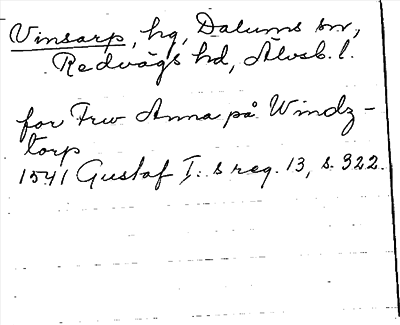 Vinsarp, hg, Dalums sn,
Redvägs hd, Älvsb. l.
for Frw Anna på Windz-
torp
1541 Gustaf I: s reg. 13, s. 322.